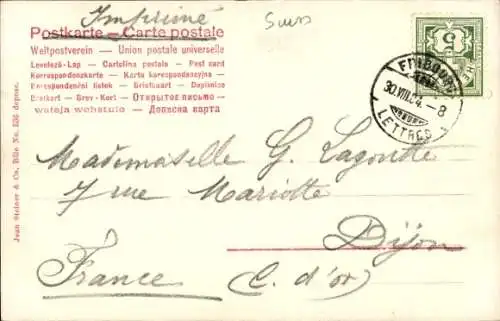 Imprimé
Postkarte — Carte postale
Weltpostverein — Union postale universelle
Levelező-Lap — Cartolina postale — Post card
Korrespondenzkarte — Karta korespondencyjna —
Korespondenční lístek — Briefkaart — Dopisnice
Brefkort — Brev-Kort — Открытое письмо —
wataja webstule — Дописна карта
FRIBOURG
30.VIII.04. - 8
LETTRES
5
Jean Steiner & Co., Bâle No. 336 déposé.
Mademoiselle G. Lagoutte
7 rue Mariotte
Dijon
France (C. d'or)